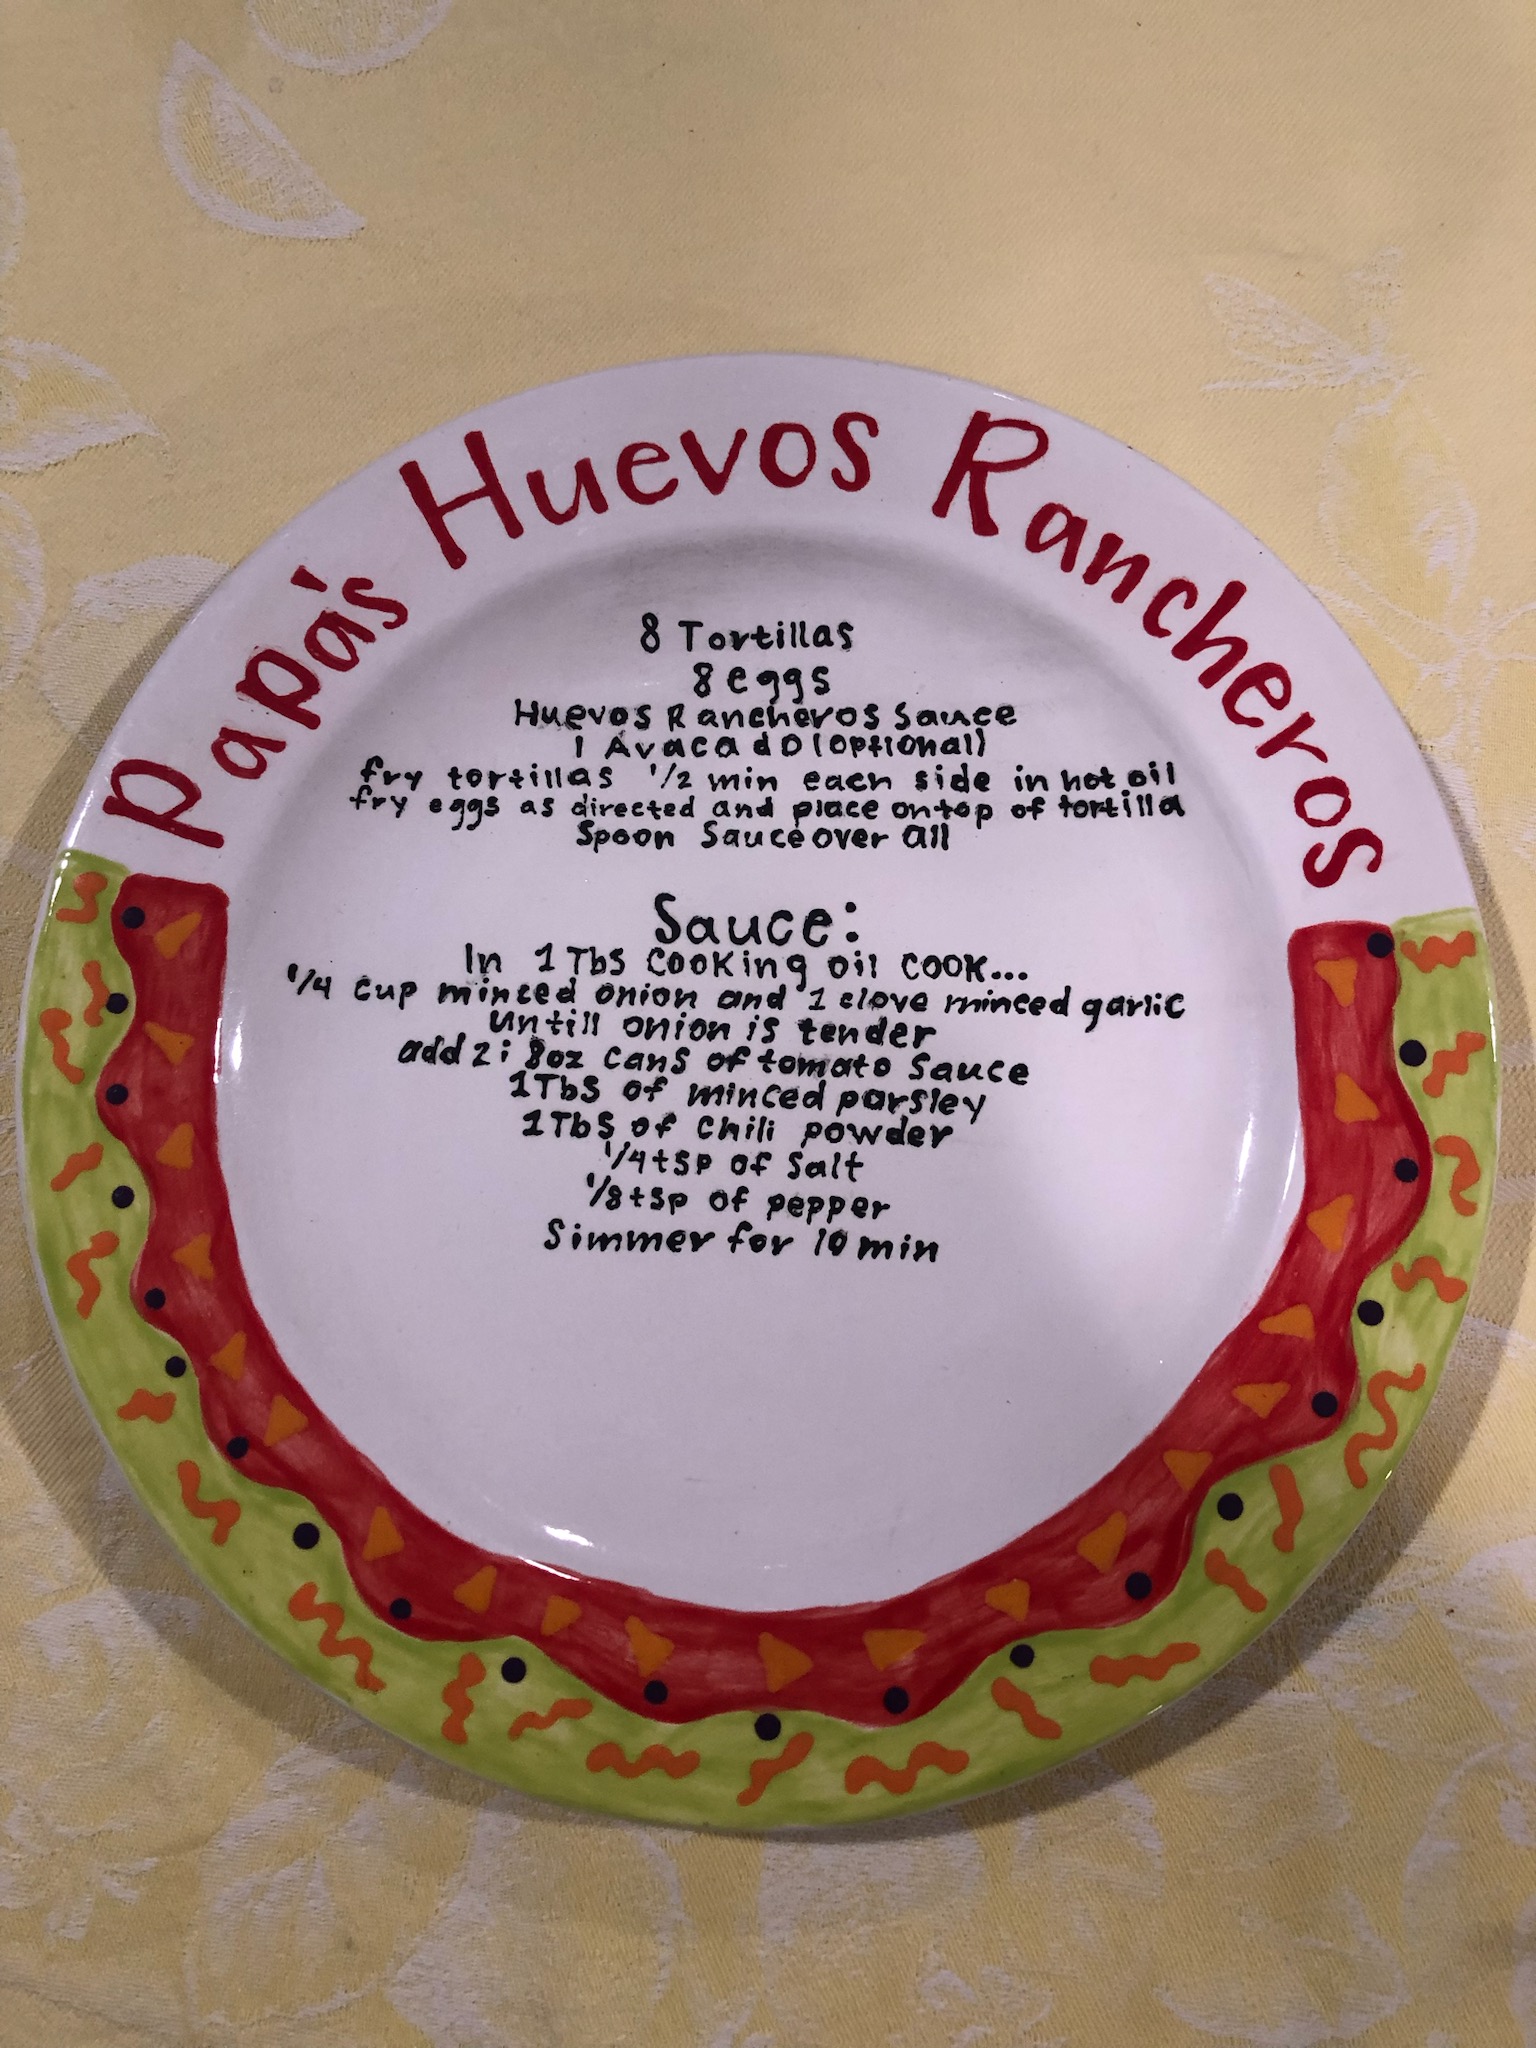 Papá's Huevos Rancheros
8 Tortillas
8 eggs
Huevos Rancheros Sauce
1 Avacado (optional)
fry tortillas 1/2 min each side in hot oil
fry eggs as directed and place ontop of tortilla
Spoon Sauce over all
Sauce:
In 1 Tbs Cooking oil cook...
1/4 cup minced onion and 1 clove minced garlic
untill onion is tender
add 2; 8oz cans of tomato sauce
1 Tbs of minced parsley
1 Tbs of chili powder
1/4 tsp of salt
1/8 tsp of pepper
Simmer for 10 min